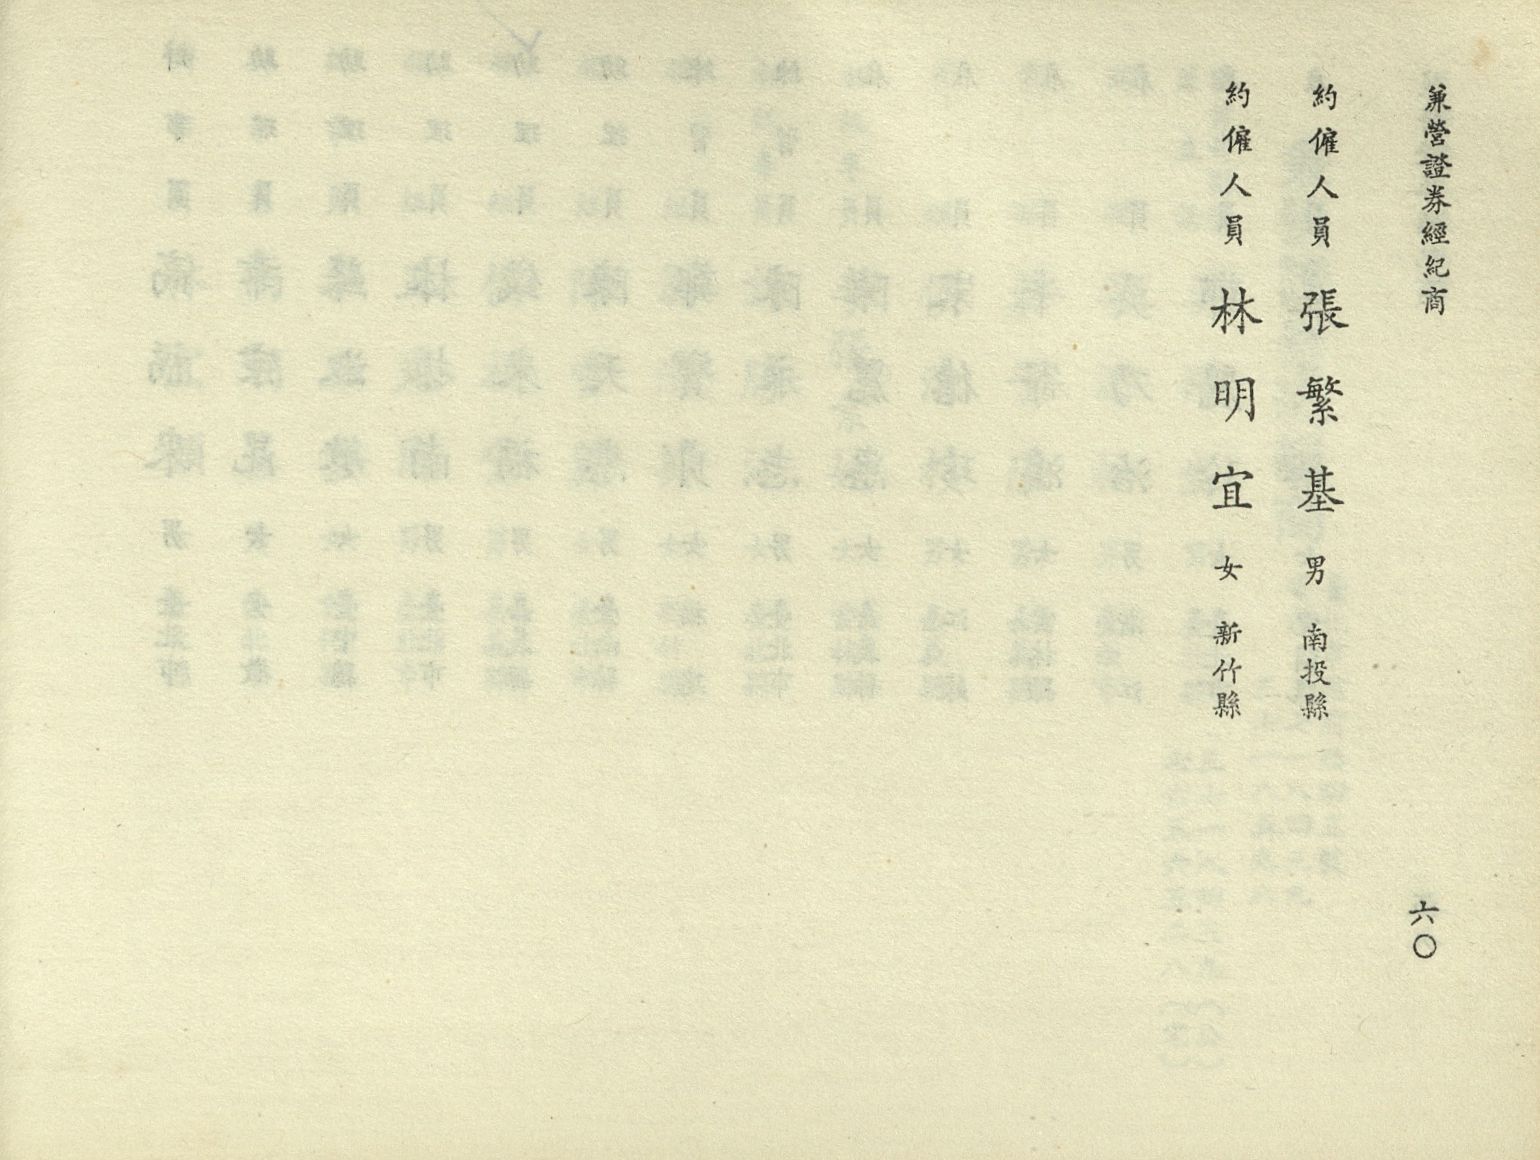 兼營證券經紀商
六〇
約僱人員 張繁基 男 南投縣
約僱人員 林明宜 女 新竹縣